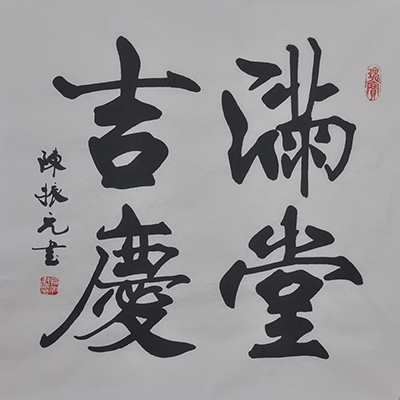 滿堂
吉慶
陳振元書